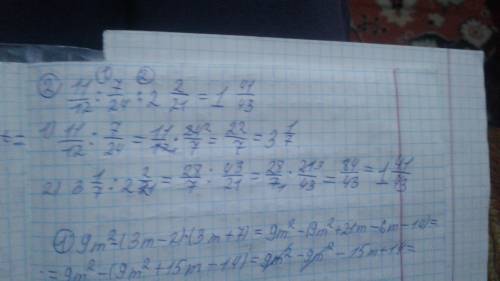 ① ②
② 11/12 : 7/24 : 2 2/21 = 1 41/43
1) 11/12 : 7/24 = 11/12 · 24²/7 = 22/7 = 3 1/7
2) 3 1/7 : 2 2/21 = 28/7 : 43/21 = 28/7 · 21³/43 = 84/43 = 1 41/43
① 9m²-(3m-2)·(3m+7) = 9m²-(9m²+21m-6m-14)=
= 9m²-(9m²+15m-14)= 9m²-9m²-15m+14=